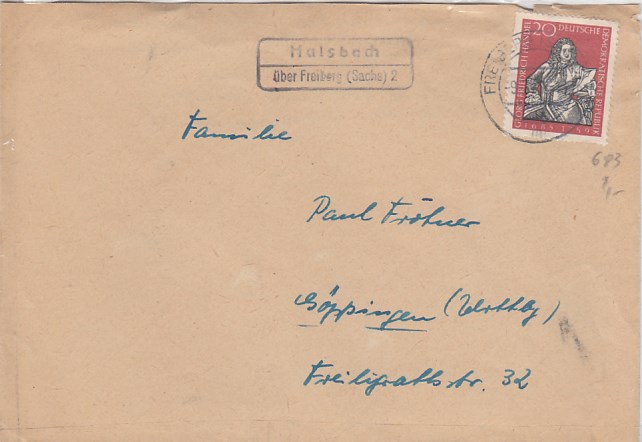 Halsbach
über Freiberg (Sachs) 2
20 DEUTSCHE
DEMOKRATISCHE REPUBLIK
GEORG FRIEDRICH HÄNDEL
1685 1759
FREIB
Familie
683
Paul Fröhner
Göppingen (Wrttbg)
Freiligrathstr. 32